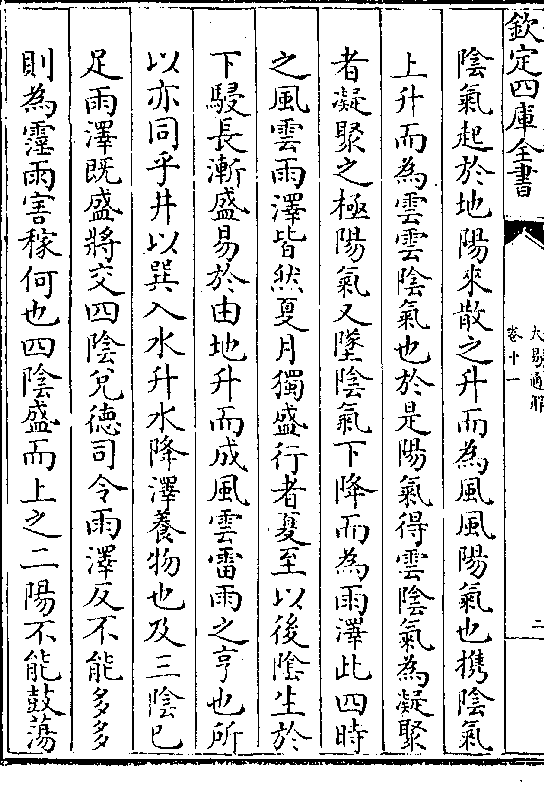 欽定四庫全書
大易通解
卷十一
二
陰氣起於地陽來散之升而為風風陽氣也携陰氣
上升而為雲雲陰氣也於是陽氣得雲陰氣為凝聚
者凝聚之極陽氣又墜陰氣下降而為雨澤此四時
之風雲雨澤皆然夏月獨盛行者夏至以後陰生於
下駸長漸盛易於由地升而成風雲雷雨之亨也所
以亦同乎井以巽入水升水降澤養物也及三陰已
足雨澤既盛將交四陰兌德司令雨澤反不能多多
則為霪雨害稼何也四陰盛而上之二陽不能鼓蕩